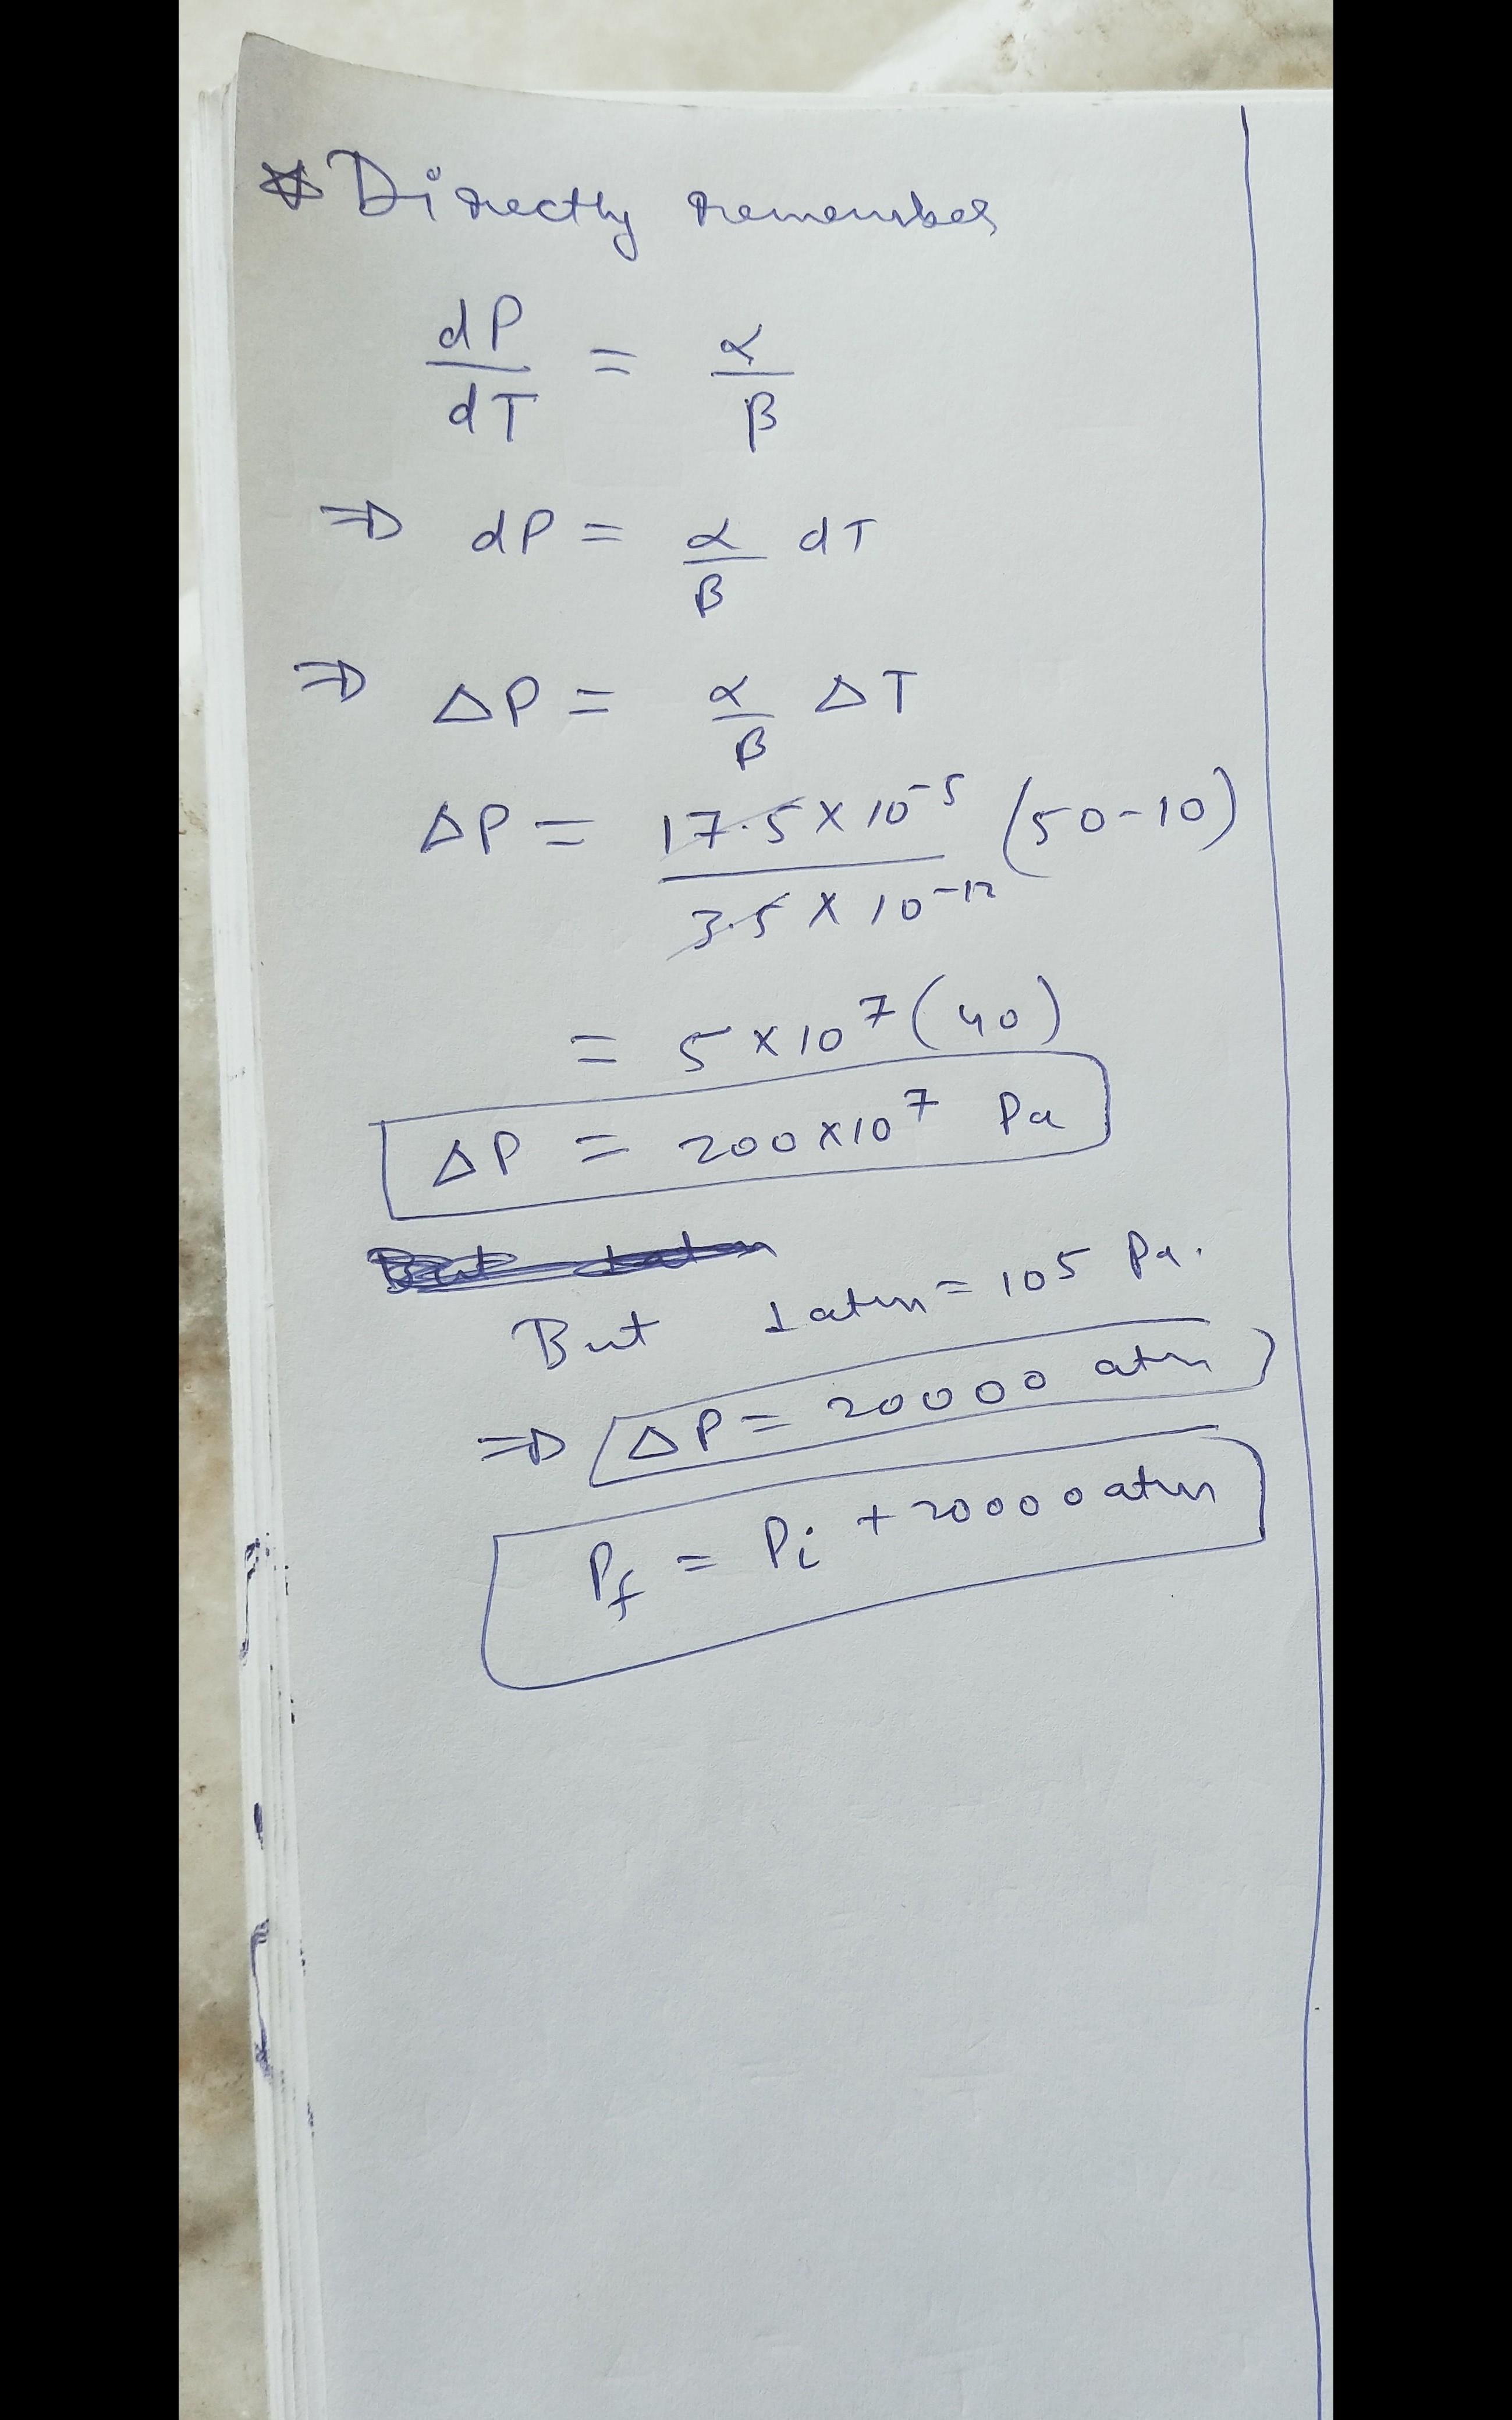 * Directly remember
dP/dT = α/β
⇒ dP = α/β dT
⇒ ΔP = α/β ΔT
ΔP = 17.5 × 10⁻⁵ / 3.5 × 10⁻¹² (50-10)
= 5 × 10⁷ (40)
ΔP = 200 × 10⁷ Pa
But 1 atm = 10⁵ Pa.
⇒ ΔP = 20000 atm
Pf = Pi + 20000 atm